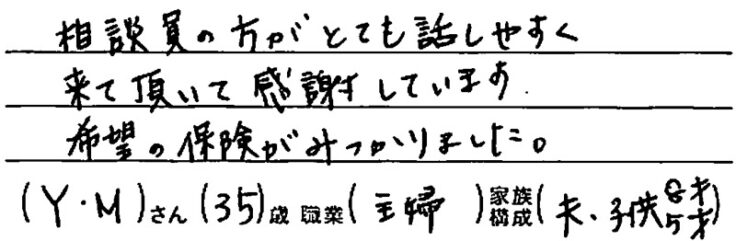 相談員の方がとても話しやすく
来て頂いて感謝しています.
希望の保険がみつかりました。
(Y・M)さん(35)歳 職業(主婦)家族構成(夫、子供8才5才)